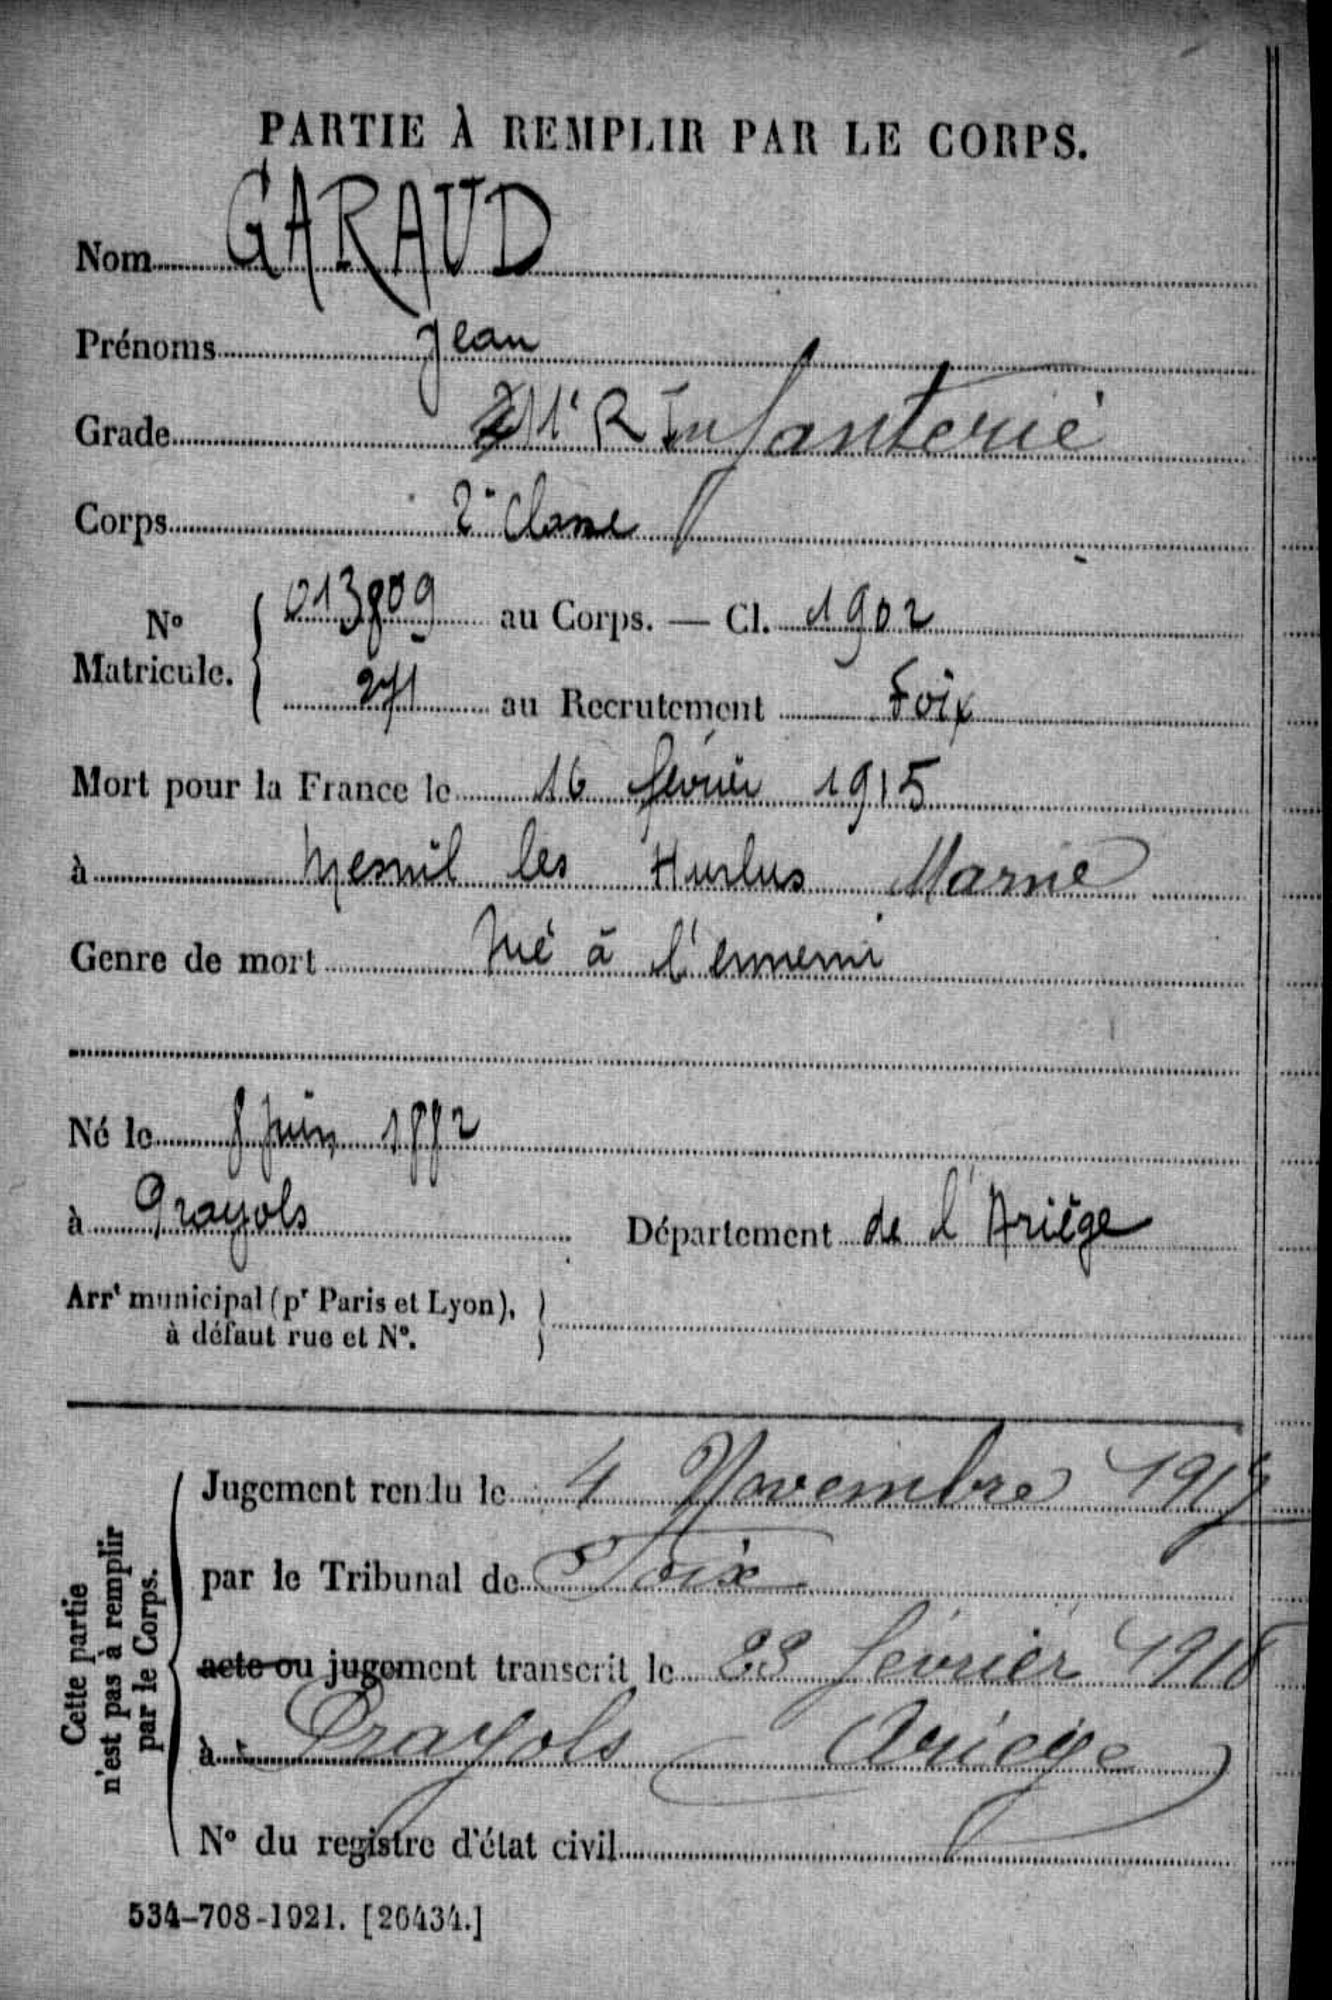 PARTIE À REMPLIR PAR LE CORPS.
Nom GARAUD
Prénoms Jean
Grade 11e R Infanterie
Corps 2e Classe
No Matricule. 013809 au Corps. — Cl. 1902
271 au Recrutement Foix
Mort pour la France le 16 février 1915
à Mesnil les Hurlus Marne
Genre de mort Tué à l'ennemi
Né le 8 Juin 1882
à Prayols Département de l'Ariège
Arrt municipal (pr Paris et Lyon), à défaut rue et No.
Cette partie n'est pas à remplir par le Corps.
Jugement rendu le 4 Novembre 1917
par le Tribunal de Foix
acte ou jugement transcrit le 23 février 1918
à Prayols Ariège
No du registre d'état civil
534-708-1921. [26434.]